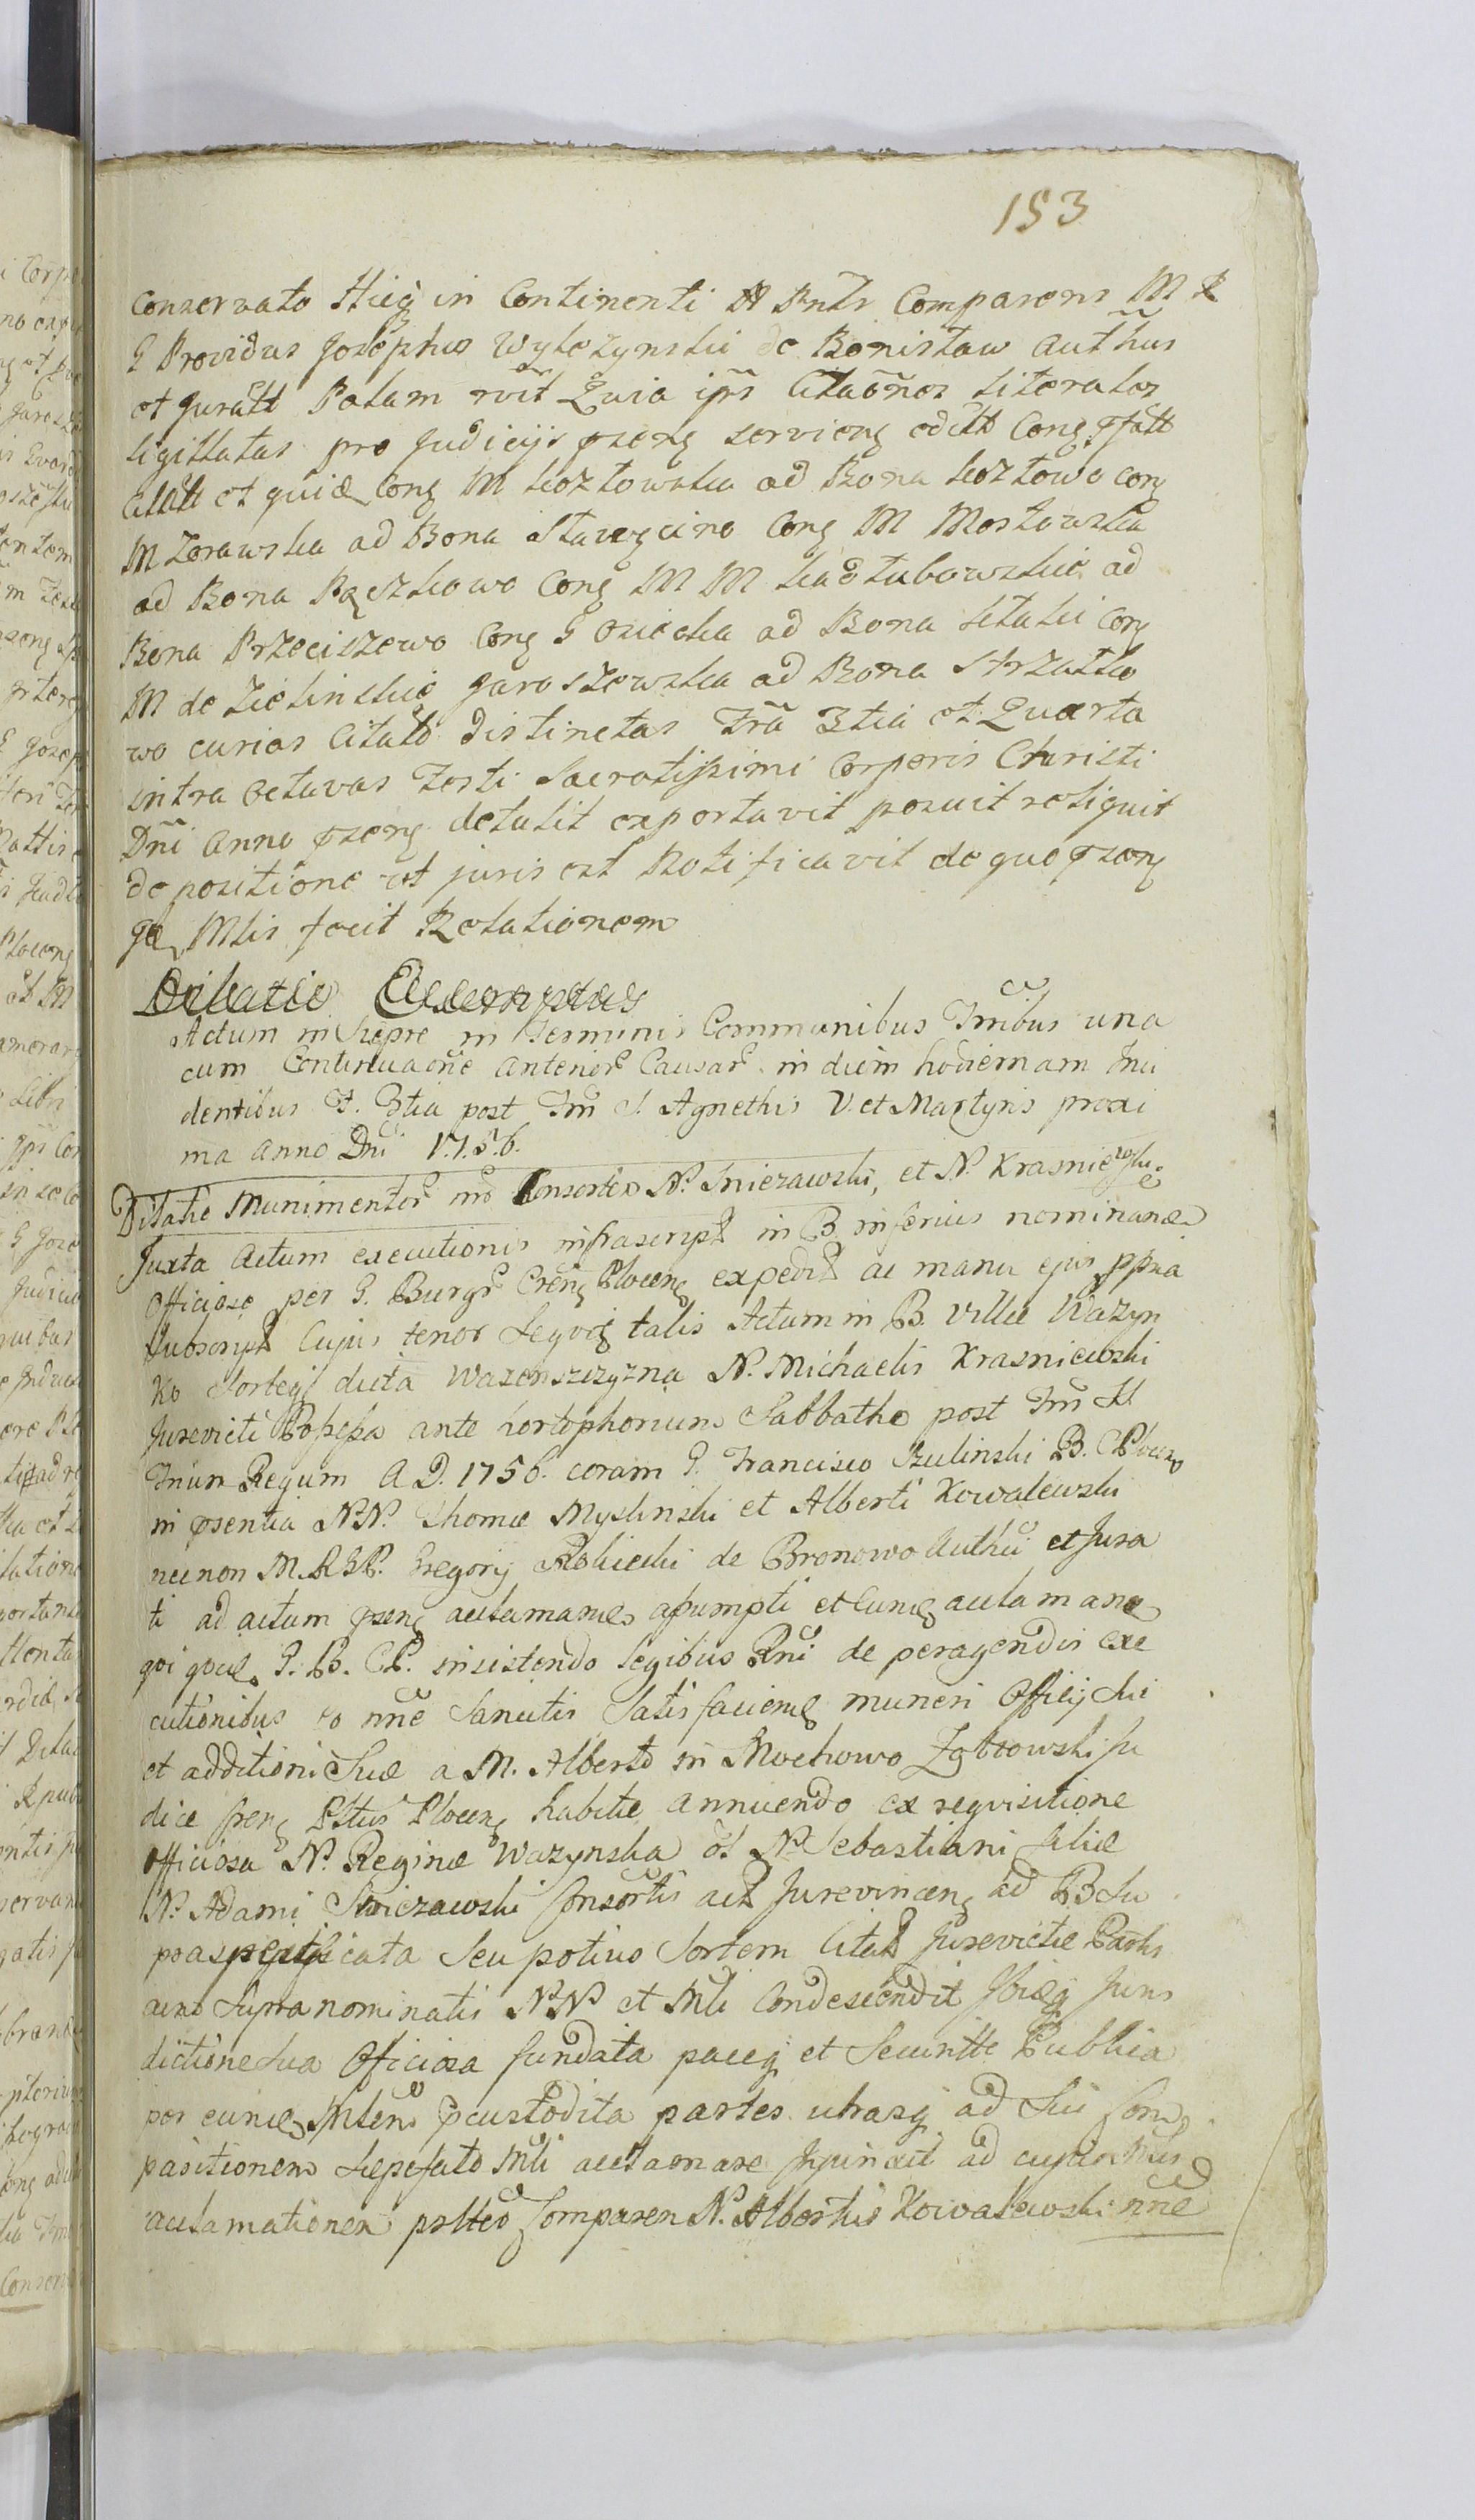 153
Conservato Hicq in Continenti A Pnts Comparens M R
G Providus Josephus Wyłczynski de Bonisław authus
et Juratt Palam rvit Quia ips Citaones literales
sigillatas pro Judicijs pseng servieng edidit Cong pfatt
Citatt et quide Cong M kozłowska ad Bona kozłowo Cong
M Zorawska ad Bona Stawęcino Cong M Mostowska
ad Bona Pęszkowo Cong M M kadłubowskie ad
Bona Przeciszewo Cong G osiecka ad Bona Sitaki Cong
M de Zielinskie Jaroszewska ad Bona Strzałko
wo curias Citatt distinctas Fra 3tia et Quarta
intra octavas Festi Sacratissimi Corporis Christi
Dni Anno pseng detulit exportavit posuit reliquit
depositione ut juris est Notificavit de quo pseng
ge Mlis fecit Relationem
Actum in Siepre in Terminis Communibus Tribus una
cum Continuaone anterior Causar in diem hodiernam Inci
dentibus F. 3tia post Fm S. Agnethis V. et Martyris proxi
ma anno Dni 1.7.5.6.
Dilatio Munimentor Consortes N. Sniezawski, et N. Krasniewski
Juxta Actum executionis infrascript in B. inferius nominand
Officiose per G. Burgr Creng Ploceng expedit ac manu ejus ppria
Subscript Cujus tenor Seqvit talis Actum in B. Villæ Wazyn
ko Sorteq dicta Wazenszczyzna N. Michaelis Krasniewski
Jurevicti Possessa ante hortophorium Sabbatho post Fm SS
Trium Regum A D. 1756. coram G. Francisco Szulinski B. C Ploceno
in psentia NN. Thomæ Myslinski et Alberti Kowalewski
necnon M. R G P. Gregorij Robiecki de Bronowo Authci et Jura
ti ad actum pseng acclamand assumpti et Cunq acclamane
qoi qvid. G. B. CP. insistendo legibus Rni de peragendis exe
cutionibus eo nne Sancitis Satisfaciend muneri Officij Sui
et additioni Suæ a M. Alberto in Mochowo Zabłowski Ju
dice Creng Pltus Ploceng habitæ annuendo ex reqvisitione
officiosa N. Reginæ Wazynska ol N. Sebastiani filiæ
N. Adami Sniezawski Consortis act Jurevinceng ad B. Su
praspecificata Seu potius Sortem Citatt Jurevictæ Partis
cum Supra nominatis NN et Mli Condescendit Ibiq Juris
dictione Sua Officiosa fundata paceq et Securitte Publica
per eund Mlem pcustodita partes utrasq ad Sui Com
parsitionem Sæpefato Mli acclamare Injunxit ad cujus Mlis
acclamationem pltter Comparen N. Albertus Kowalewski nne